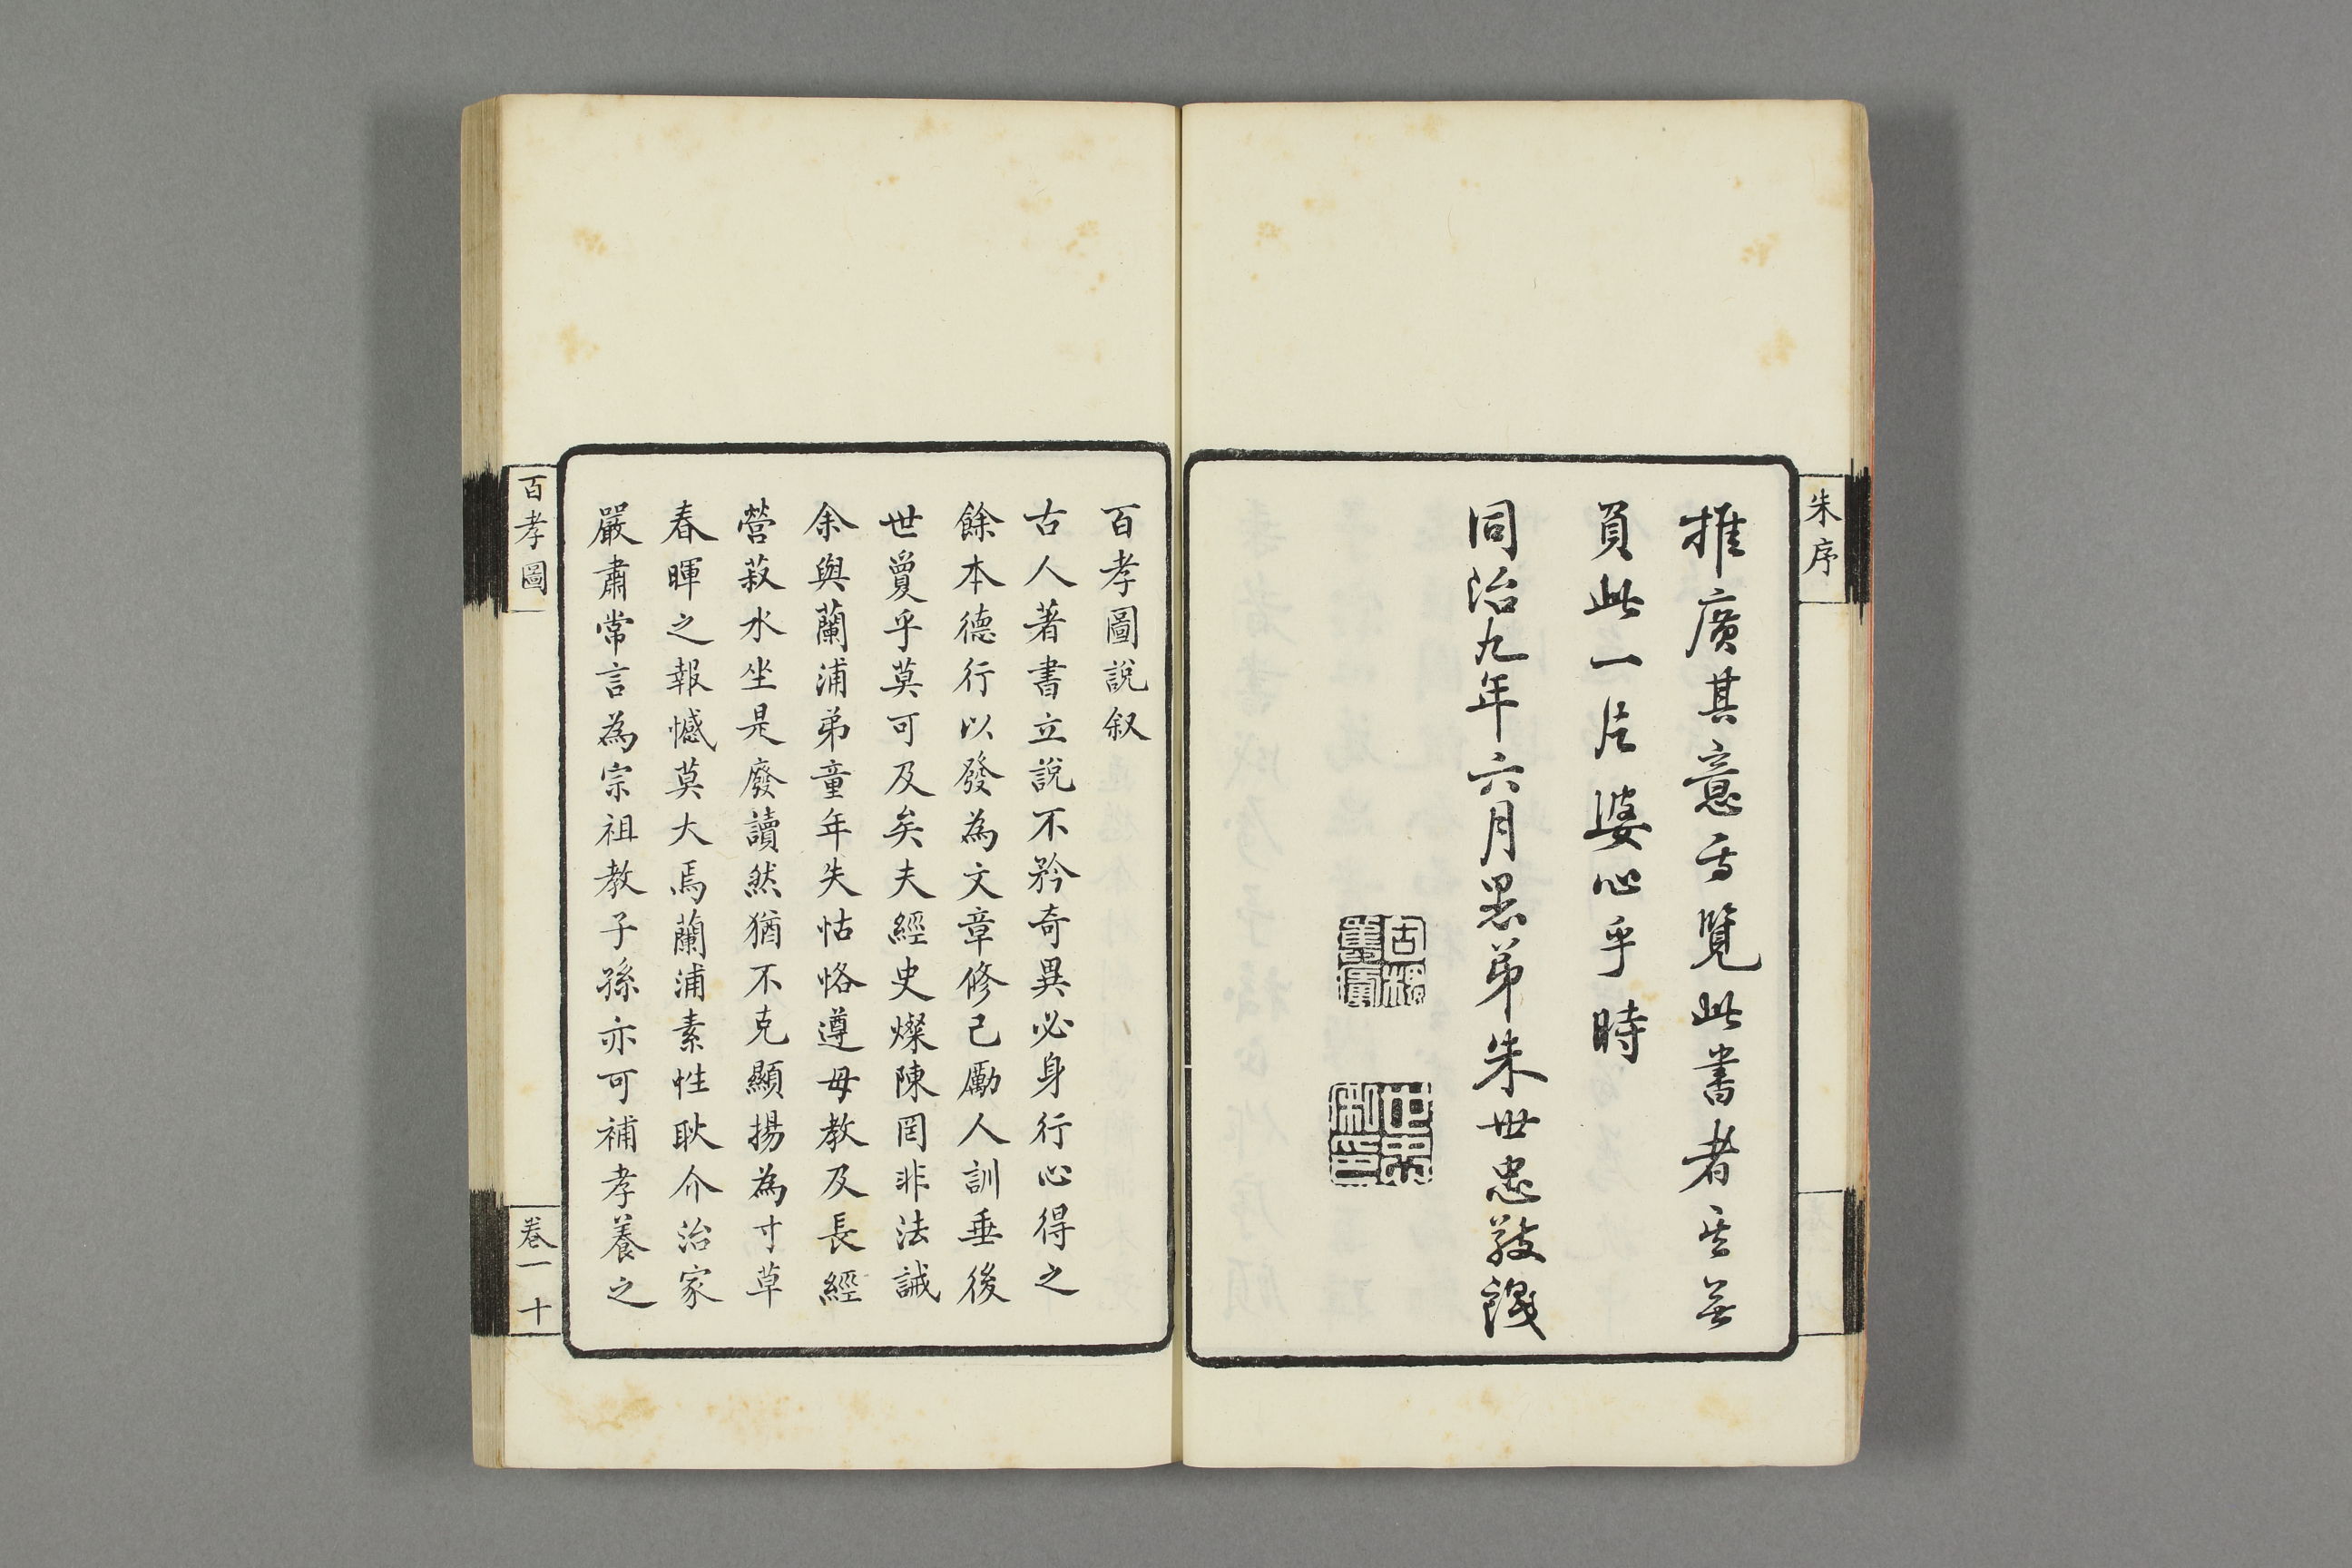 朱序
推廣其意而覽此書者其無
負此一片婆心乎時
同治九年六月愚弟朱世忠敬識
百孝圖說叙
古人著書立說不矜奇異必身行心得之
餘本德行以發為文章修己勵人訓垂後
世敻乎莫可及矣夫經史燦陳罔非法誡
余與蘭浦弟童年失怙恪遵母教及長經
營菽水坐是廢讀然猶不克顯揚為寸草
春暉之報憾莫大焉蘭浦素性耿介治家
嚴肅常言為宗祖教子孫亦可補孝養之
百孝圖
卷一
十